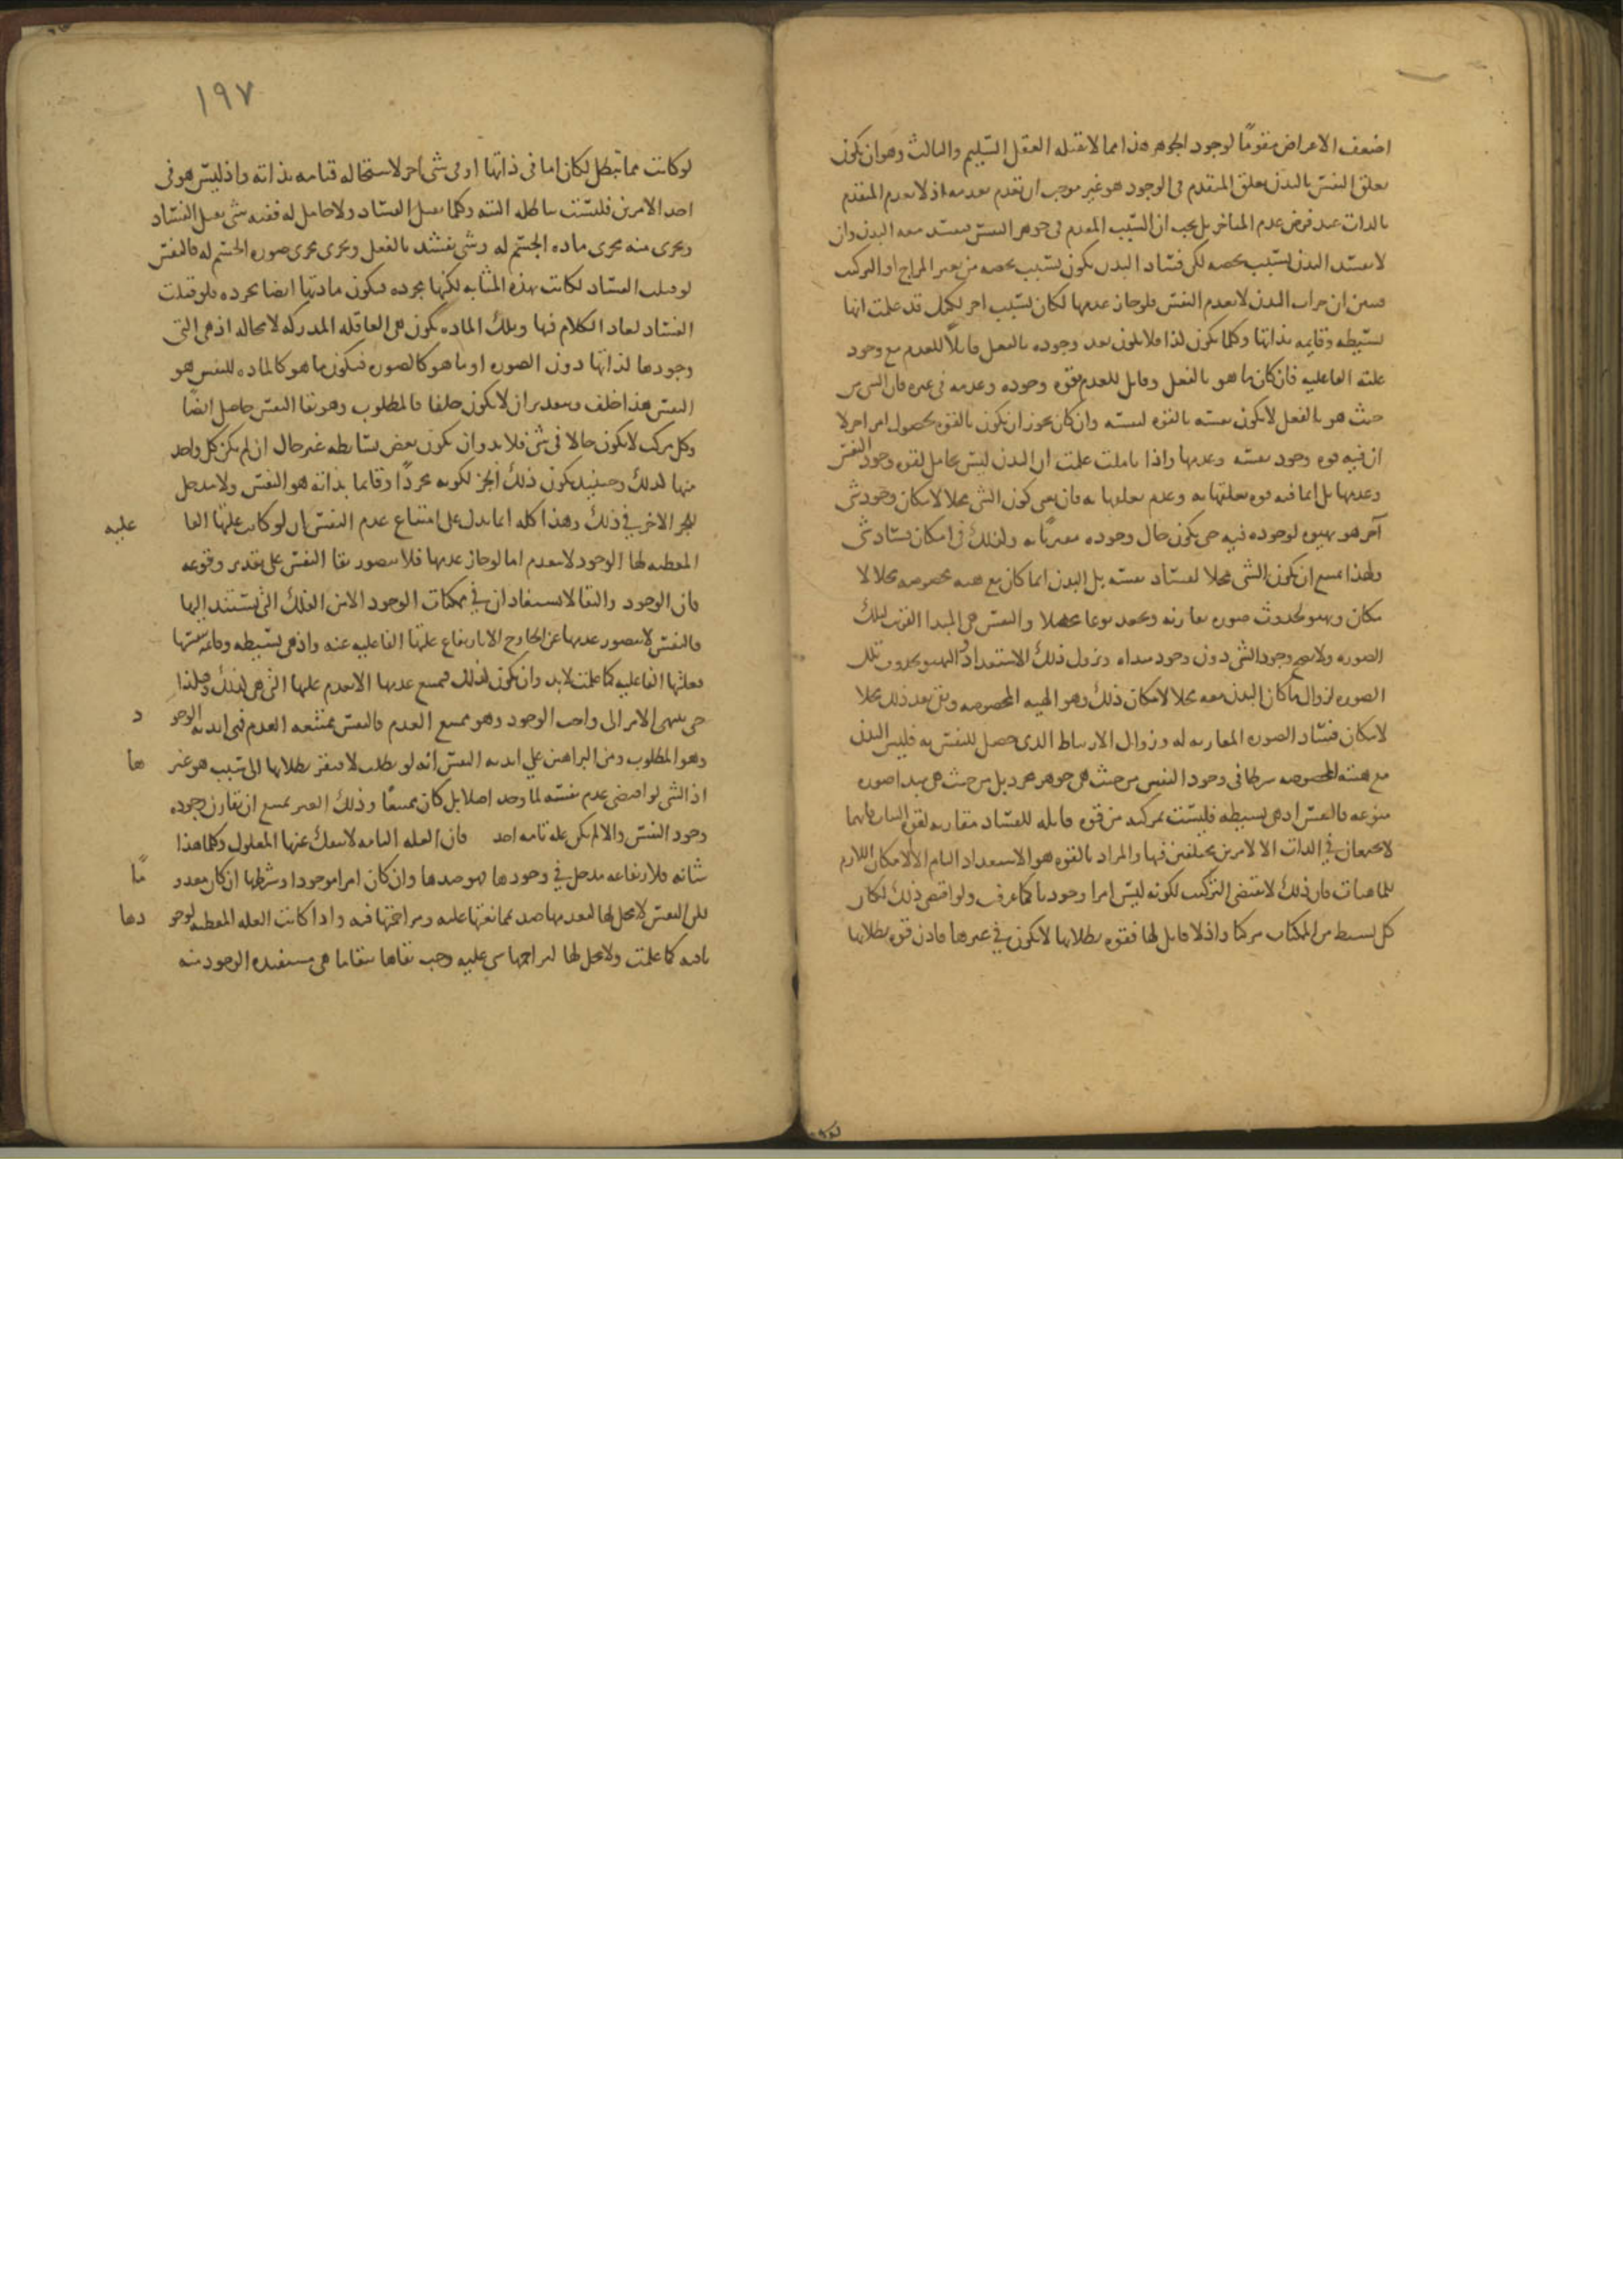 اضعف الاعراض مقوما لوجود الجوهر هذا مما لا يقبله العقل السليم والثالث وهو ان يكون
تعلق النفس بالبدن تعلق المتقدم في الوجود هو غير موجب ان تقدم بعدمه اذ لا يعدم المتقدم
بالذات عند فرض عدم المتاخر بل يجب ان السبب المعدم في جوهر النفس فيفسد معه البدن وان
لا يفسد البدن بسبب يخصه لكن فساد البدن يكون بسبب يخصه من تغير المزاج او التركيب
فتبين ان خراب البدن لا يعدم النفس فلو جاز عدمها لكان بسبب اخر لكن قد علمت انها
بسيطة وقايمة بذاتها وكلما يكون كذا فلا يكون بعد وجوده بالفعل قابلا للعدم مع وجود
علته الفاعلية فان كان ما هو بالفعل وقابل للعدم فقوة وجوده وعدمه في غيره فان الشي من
حيث هو بالفعل لا يكون نفسه بالقوة لنفسه وان كان يجوز ان يكون بالقوة بحصول امر اخر لا
ان فيه قوة وجود نفسه وعدمها واذا تاملت علمت ان البدن ليس بحامل لقوة وجود النفس
وعدمها بل انما فيه قوة تعلقها به وعدم تعلقها به فان معنى كون الشي محلا لامكان وجود شي
آخر هو تهيوه لوجوده فيه حتى يكون حال وجوده مقترنا به وكذلك في امكان فساد شي
ولهذا يمتنع ان يكون الشي محلا لفساد نفسه بل البدن انما كان مع هيئة مخصوصة محلا لا
مكان وتهيو لحدوث صورة تقارنه وتجعله نوعا محصلا والنفس هي المبدا القريب لتلك
الصورة ولا يصح وجود الشي دون وجود مبداه وزول ذلك الاستعداد والتهيو بحدوث تلك
الصورة لزوال ما كان البدن معه محلا لامكان ذلك وهو الهيئة المخصوصة وبقي بعد ذلك محلا
لامكان فساد الصورة المقارنة له وزوال الارتباط الذي حصل للنفس به فليس البدن
مع هيئته المخصوصة شرطا في وجود النفس من حيث هي جوهر مجرد بل من حيث هي مبدا صورة
منوعة فالنفس اذ هي بسيطة فليست بمركبة من قوة قابلة للفساد مقارنة لقوة الثبات فانهما
لا يجتمعان في الذات الا لامرين مختلفين فيها والمراد بالقوة هو الاستعداد التام لا الامكان اللازم
للماهيات فان ذلك لا يقتضي التركيب لكونه ليس امرا وجوديا كما عرف ولو اقتضى ذلك لكان
كل بسيط من الممكنات مركبا واذ لا قابل لها فقوة بطلانها لا يكون في غيرها فاذن قوة بطلانها
١٩٧
لو كانت مما تبطل لكان اما في ذاتها او في شي اخر لاستحاله قيامه بذاته واذ ليس هو في
احد الامرين فليست باطلة البتة وكلما يقبل الفساد ولا حامل له ففيه شي يقبل الفساد
ويجري منه مجرى مادة الجسم له وشي يفسد بالفعل ويجري مجرى صورة الجسم له فالنفس
لو قبلت الفساد لكانت بهذه المثابة لكنها مجردة فيكون مادتها ايضا مجردة فلو قبلت
الفساد لعاد الكلام فيها وتلك المادة تكون هي العاقلة المدركة لا محالة اذ هي التي
وجودها لذاتها دون الصورة او ما هو كالصورة فيكون ما هو كالمادة للنفس هو
النفس هذا خلف وبتقدير ان لا يكون خلفا فالمطلوب وهو بقا النفس حاصل ايضا
وكل مركب لا يكون حالا في شي فلا بد وان يكون بعض بسايطه غير حال ان لم يكن كل واحد
منها كذلك وحينئذ يكون ذلك الجز لكونه مجردا وقايما بذاته هو النفس ولا مدخل
للجز الاخر في ذلك وهذا كله انما يدل على امتناع عدم النفس ان لو كانت علتها الفا علية
المعطية لها الوجود لا تعدم اما لو جاز عدمها فلا يتصور بقا النفس على تقدير وقوعه
فان الوجود والبقا لا يستفادان في ممكنات الوجود الا من العلل التي يستند اليها
فالنفس لا يتصور عدمها عن الخارج الا بارتفاع علتها الفاعلية عنه واذ هي بسيطة وقايمة بنفسها
فعلتها الفاعلية كما علمت لا بد وان يكون كذلك فيمتنع عدمها الا بعدم علتها التي هي كذلك وهكذا
حتى ينتهي الامر الى واجب الوجود وهو ممتنع العدم فالنفس ممتنعة العدم فهي ابدية الوجو د
وهو المطلوب ومن البراهين على ابدية النفس انه لو بطلت لافتقر بطلانها الى سبب هو غير ها
اذ الشي لو اقتضى عدم نفسه لما وجد اصلا بل كان ممتنعا وذلك الغير يمتنع ان يقارن وجوده
وجود النفس والا لم يكن علة تامة احد فان العلة التامة لا ينفك عنها المعلول وكلما هذا
شانه فلارتفاعه مدخل في وجودها فهو ضدها وان كان امرا موجودا وشرطها ان كان معدو ما
لكن النفس لا محل لها ليعدمها ضد بممانعتها عليه ومزاحمتها فيه واذا كانت العلة المعطية لوجو دها
باقية كما علمت ولا محل لها ليزاحمها شي عليه وجب بقاها ببقا ما هي مستفيدة الوجود منه